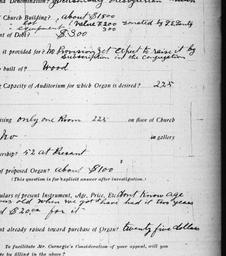 Church Building? about $1800
Lot Value $200 donated by
Equipment 300
nt of Debt? $300
is it provided for? No Provision yet expect to raise it by
Subscription in the congregation
built of? Wood
g Capacity of Auditorium for which Organ is desired? 225
only one Room 225 on floor of Church
No in gallery
ership? 52 at Present
of proposed Organ? about $100
(This question is for explicit answer after investigation.)
ulars of present Instrument, Age, Price, Etc. dont know age
was old when we got it had it two years
$20.00 for it
nt already raised toward purchase of Organ? twenty five dollars
To facilitate Mr. Carnegie's Consideration of your appeal, will you
be filled in the above?